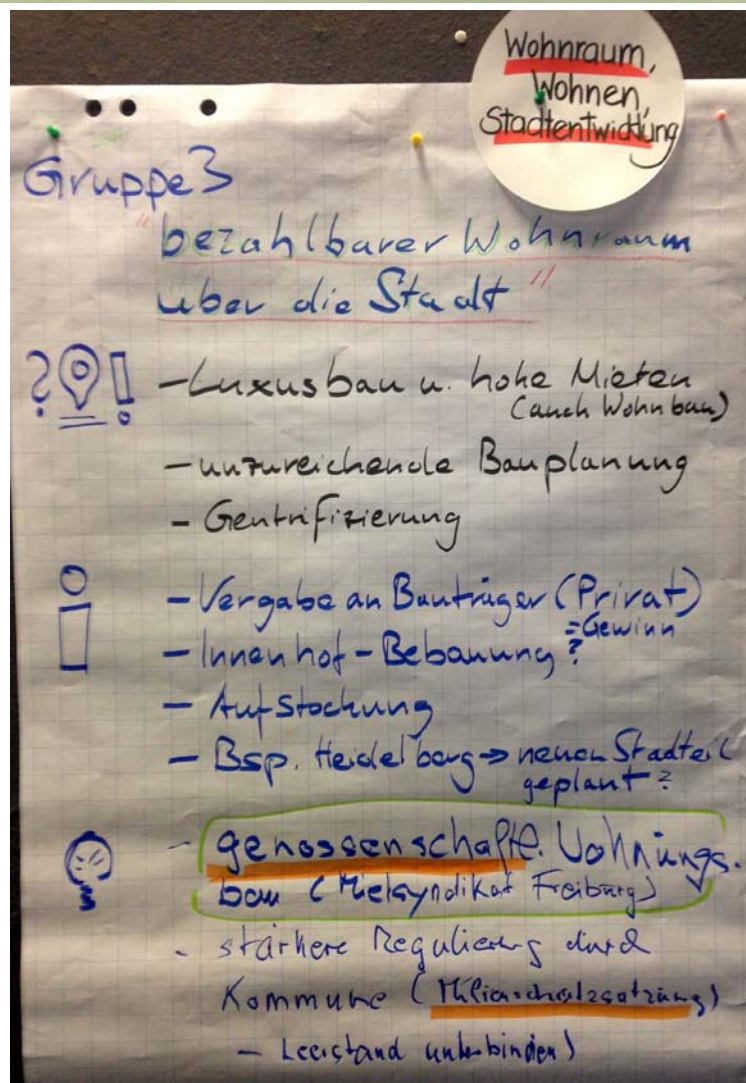 Wohnraum,
Wohnen,
Stadtentwicklung
Gruppe 3
"bezahlbarer Wohnraum
über die Stadt"
?!
- Luxusbau u. hohe Mieten
(auch Wohnbau)
- unzureichende Bauplanung
- Gentrifizierung
i
- Vergabe an Bauträger (Privat)
= Gewinn
- Innenhof - Bebauung ?
- Aufstockung
- Bsp. Heidelberg → neuen Stadteil
geplant ?
- genossenschaftl. Wohnungs.
bau (Mietsyndikat Freiburg)
- stärkere Regulierung durch
Kommune (Milieuschutzsatzung)
- Leerstand unterbinden)